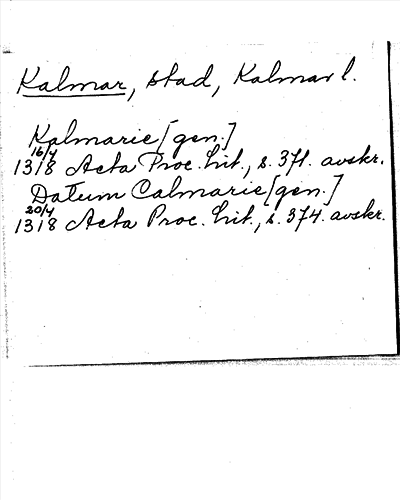 Kalmar, stad, Kalmar l.
Kalmarie [gen.]
16/4
1318 Acta Proc. hit., s. 371. avskr.
Datum Calmarie [gen.]
20/4
1318 Acta Proc. hit., s. 374. avskr.